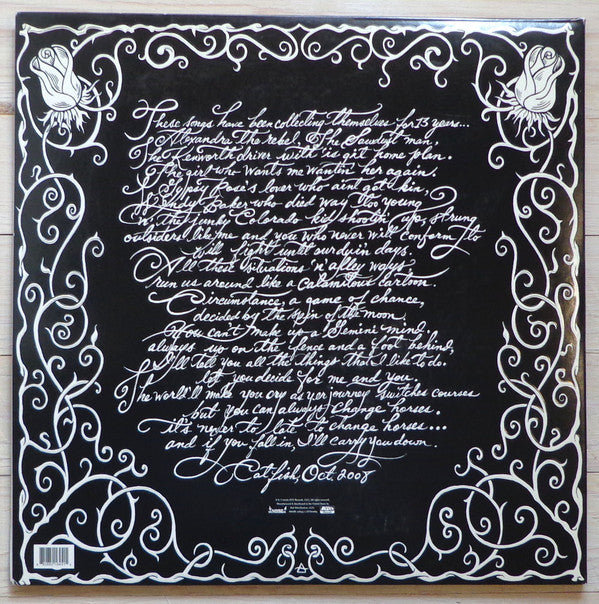 These songs have been collecting themselves for 13 years...
Alexandra the rebel. The Sawdust man,
The Kenworth driver with 'is git home plan.
The girl who wants me wantin' her again.
Gypsy Rose's lover who ain't got kin,
Sandy Baker who died way too young
'n' the junky Colorado kid shootin' up, strung
outsiders like me and you who never will conform to
will fight until our dyin' days.
All these situations 'n' alley ways,
run us around like a Calamitous cartoon.
Circumstance, a game of chance,
decided by the spin of the moon.
You can't make up a Gemini mind,
always up on the fence and a foot behind,
I'll tell you all the things that I like to do.
let you decide for me and you.
The world'll make you cry as yer journey switches courses
but you can always change horses.
it's never to late to change horses...
and if you fall in, I'll carry you down.
Catfish, Oct. 2008